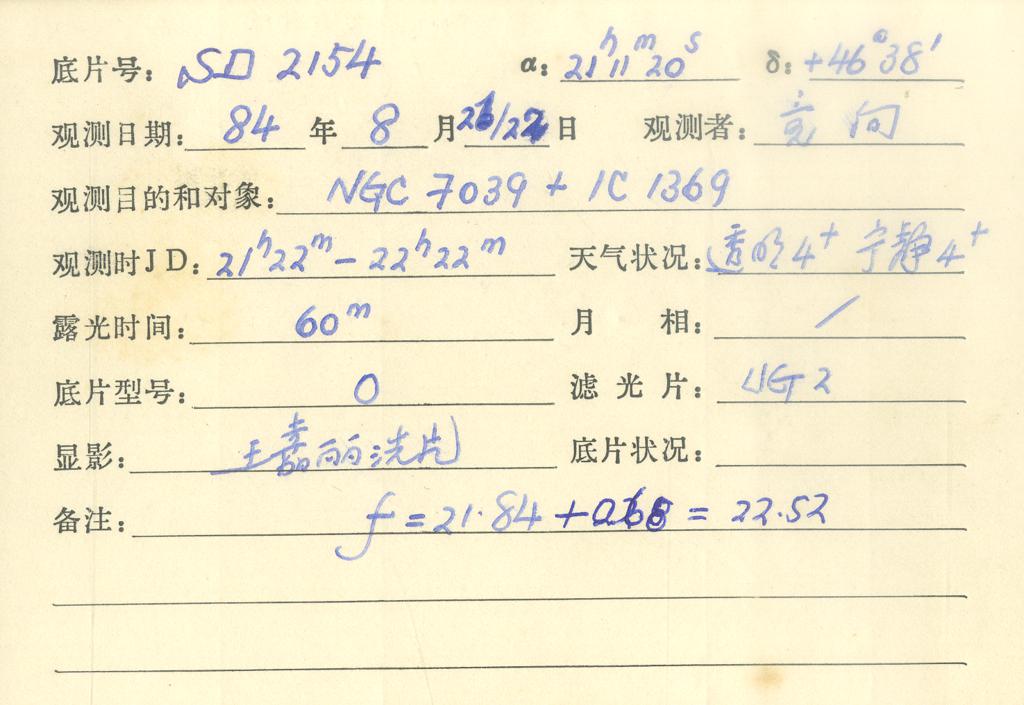 底片号: SD 2154 α: 21h 11m 20s δ: +46° 38′
观测日期: 84 年 8 月 日 观测者:
观测目的和对象: NGC 7039 + IC 1369
观测时JD: 21h22m - 22h22m 天气状况: 透明4+ 宁静4+
露光时间: 60m 月 相: /
底片型号: O 滤光片: UG2
显影: 王嘉丽洗片 底片状况:
备注: f = 21.84 + 0.68 = 22.52